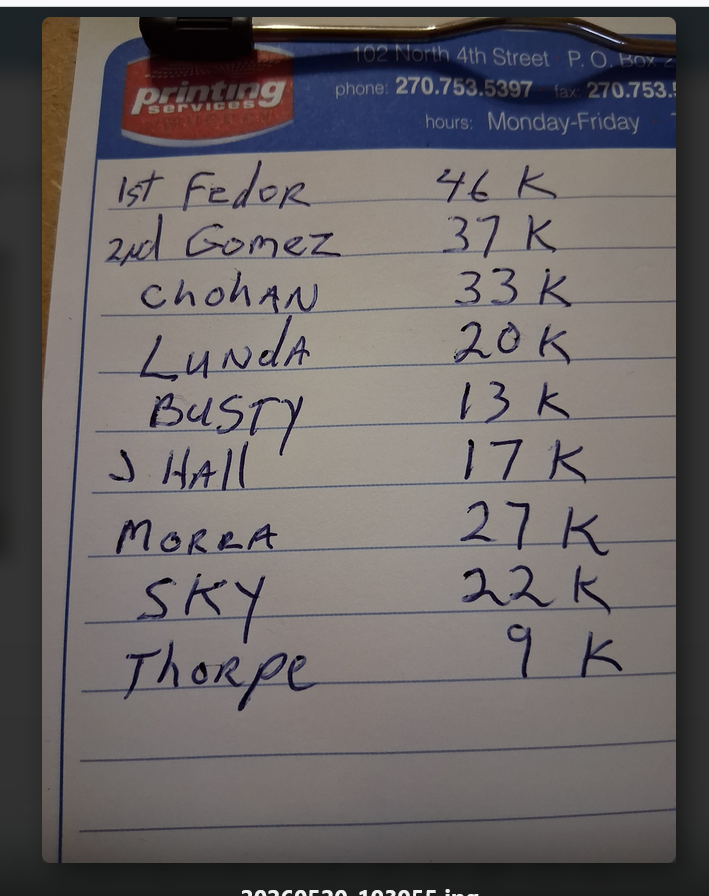 102 North 4th Street P. O. Box
printing
services
phone: 270.753.5397 fax: 270.753.
hours: Monday-Friday
1st Fedor 46 K
2nd Gomez 37 K
ChohAN 33 K
LUNdA 20 K
BUSTY 13 K
J HAll 17 K
MORRA 27 K
SKY 22 K
Thorpe 9 K